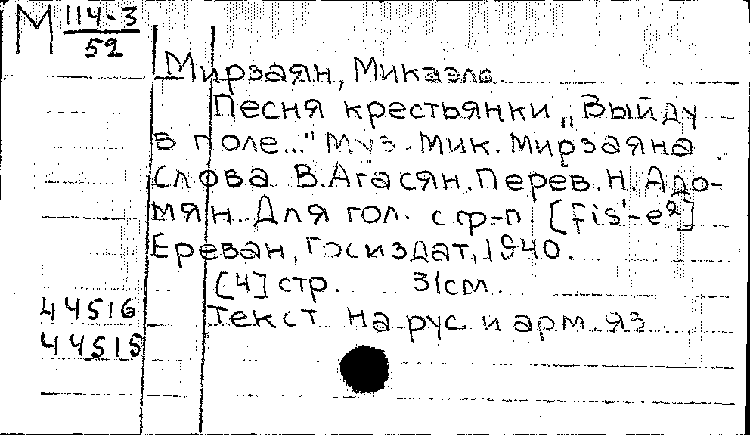 М 114-3
52
Мирзаян, Микаэл
Песня крестьянки „Выйду
в поле..." Муз. Мик. Мирзаяна
Слова В. Агасян. Перев. Н. Адо-
мян. Для гол. с ф-п [fis'-e²]
Ереван, Госиздат, 1940.
[4] стр. 31см.
44516 Текст на рус. и арм. яз.
44515